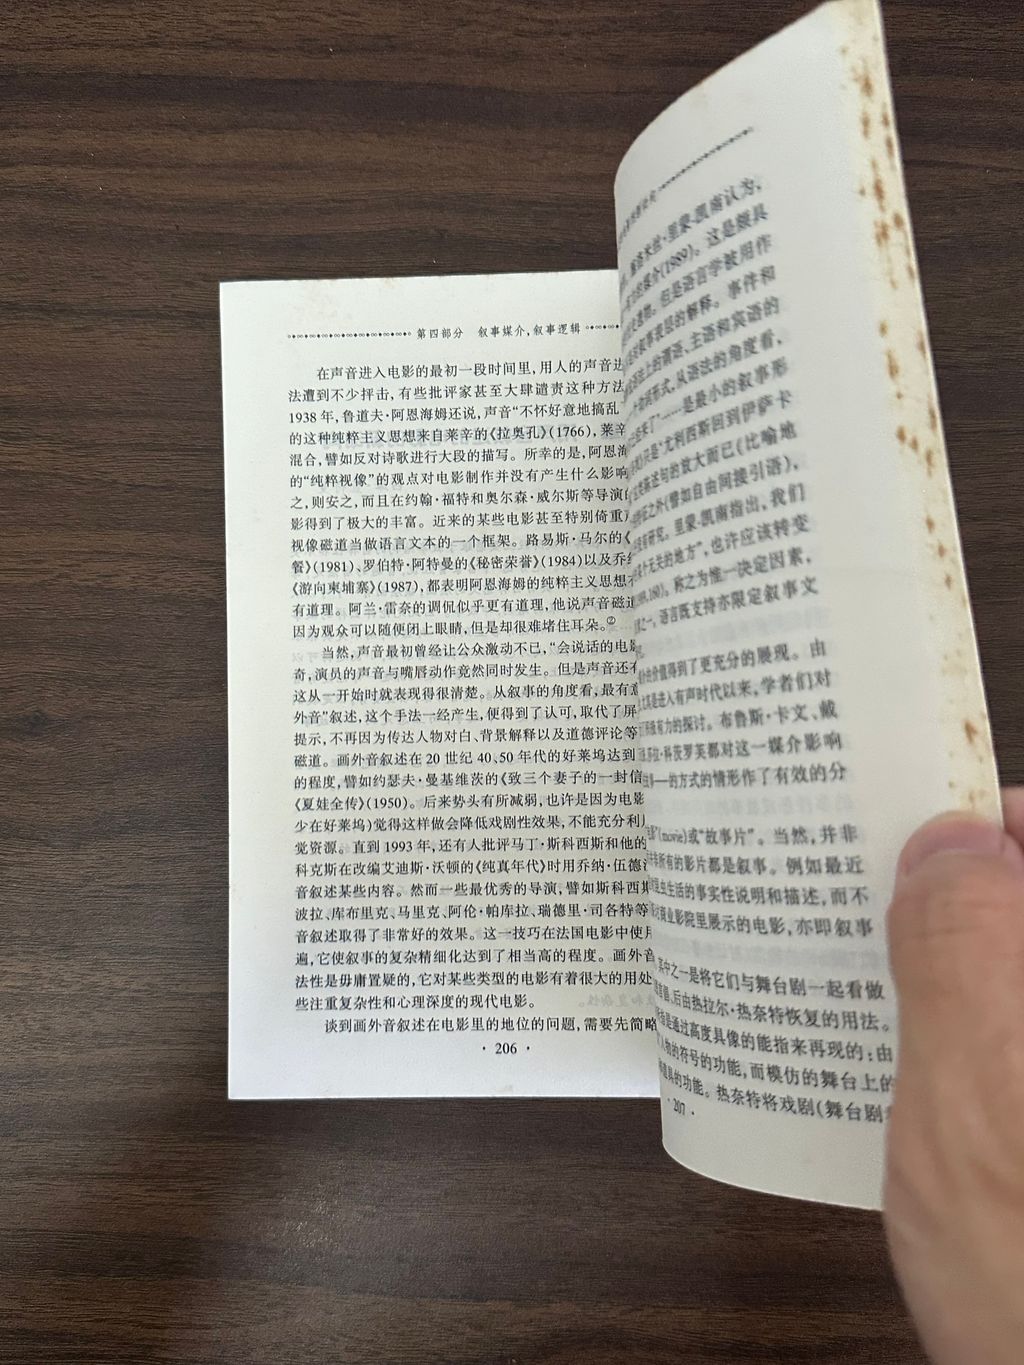 第四部分 叙事媒介,叙事逻辑
在声音进入电影的最初一段时间里,用人的声音进
法遭到不少抨击,有些批评家甚至大肆谴责这种方法
1938年,鲁道夫·阿恩海姆还说,声音“不怀好意地搞乱
的这种纯粹主义思想来自莱辛的《拉奥孔》(1766),莱辛
混合,譬如反对诗歌进行大段的描写。所幸的是,阿恩海
的“纯粹视像”的观点对电影制作并没有产生什么影响
之,则安之,而且在约翰·福特和奥尔森·威尔斯等导演的
影得到了极大的丰富。近来的某些电影甚至特别倚重
视像磁道当做语言文本的一个框架。路易斯·马尔的《
餐》(1981)、罗伯特·阿特曼的《秘密荣誉》(1984)以及乔纳
《游向柬埔寨》(1987),都表明阿恩海姆的纯粹主义思想
有道理。阿兰·雷奈的调侃似乎更有道理,他说声音磁道
因为观众可以随便闭上眼睛,但是却很难堵住耳朵。②
当然,声音最初曾经让公众激动不已,“会说话的电影
奇,演员的声音与嘴唇动作竟然同时发生。但是声音还有
这从一开始时就表现得很清楚。从叙事的角度看,最有意
外音”叙述,这个手法一经产生,便得到了认可,取代了屏
提示,不再因为传达人物对白、背景解释以及道德评论等
磁道。画外音叙述在20世纪40、50年代的好莱坞达到
的程度,譬如约瑟夫·曼基维茨的《致三个妻子的一封信
《夏娃全传》(1950)。后来势头有所减弱,也许是因为电影
少在好莱坞)觉得这样做会降低戏剧性效果,不能充分利
觉资源。直到1993年,还有人批评马丁·斯科西斯和他的
科克斯在改编艾迪斯·沃顿的《纯真年代》时用乔纳·伍德
音叙述某些内容。然而一些最优秀的导演,譬如斯科西斯
波拉、库布里克、马里克、阿伦·帕库拉、瑞德里·司各特等
音叙述取得了非常好的效果。这一技巧在法国电影中使用
遍,它使叙事的复杂精细化达到了相当高的程度。画外音
法性是毋庸置疑的,它对某些类型的电影有着很大的用处
些注重复杂性和心理深度的现代电影。
谈到画外音叙述在电影里的地位的问题,需要先简略
·206·
米丝·里蒙-凯南认为,
的媒介(1989)。这是颇具
但是语言学被用作
叙事表层的解释。事件和
上的谓语、主语和宾语的
形式,从语法的角度看,
了……是最小的叙事形
是“尤利西斯回到伊萨卡
述句的放大而已(比喻地
之外(譬如自由间接引语),
研究。里蒙-凯南指出,我们
无关的地方”,也许应该转变
160)。称之为惟一决定因素,
之一,语言既支持亦限定叙事文
价值得到了更充分的展现。由
是进入有声时代以来,学者们对
有力的探讨。布鲁斯·卡文、戴
科茨罗芙都对这一媒介影响
的方式的情形作了有效的分
(movie)或“故事片”。当然,并非
所有的影片都是叙事。例如最近
虫生活的事实性说明和描述,而不
商业影院里展示的电影,亦即叙事
其中之一是将它们与舞台剧一起看做
后由热拉尔·热奈特恢复的用法。
是通过高度具像的能指来再现的:由
人物的符号的功能,而模仿的舞台上的
道具的功能。热奈特将戏剧(舞台剧
·207·